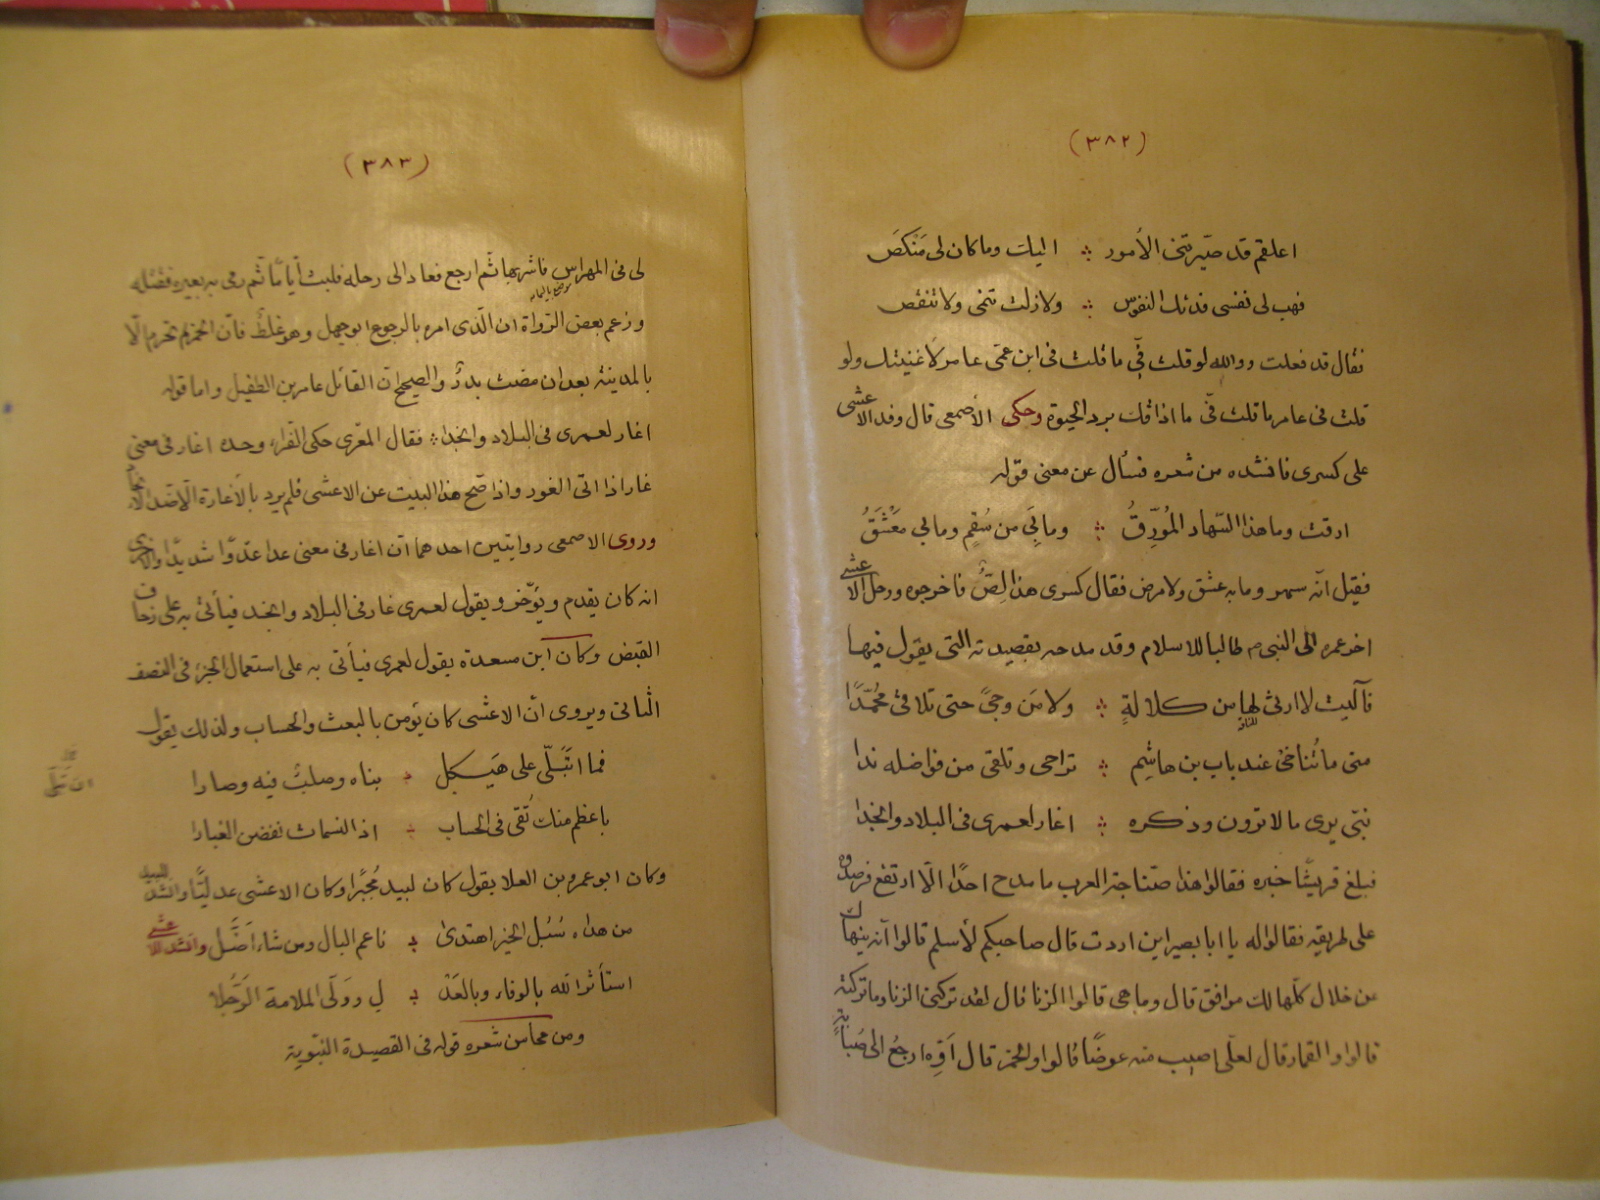 (٣٨٢)
اعلقم قد صيّرتنى الأمور ؞ اليك وما كان لى مَنْكَصَ
فهب لى نفسى فدتك النفوس ؞ ولا زلت تنمى ولا تنقص
فقال قد فعلت ووالله لو قلت فىّ ما قلت فى ابن عمى عامر لأغنيتك ولو
قلت فى عامر ما قلت فىّ ما اذاقك برد الحيوة وحكى الأصمعى قال وفد الاعشى
على كسرى فانشده من شعره فسأل عن معنى قوله
ارقت وما هذا السّهاد المُورِّقُ ؞ وما بِىَ من سُقِم وما بى مَعْشَقُ
فقيل انّه سهر وما به عشق ولا مرض فقال كسرى هذا لِصٌّ فاخرجوه ورحل الاعشى
اخر عمره الى النبى م طالبا للاسلام وقد مدحه بقصيدته التى يقول فيها
فآليت لا ارثى لها من كلالةٍ ؞ ولا من وجىً حتى تلاقى محُمّدًا
للناقة
متى ما تُناخىْ عند باب بن هاشِم ؞ تراحى وتلقى من فواضله ندا
نبّى يرى ما لا ترون وذكره ؞ اغار لعمرى فى البلاد وانجدا
فبلغ قريشًا خبره فقالوا هذا صنّاجة العرب ما مدح احدًا الّا ارتفع فرصدوه
على طريقه فقالوا له يا ابا بصير اين اردت قال صاحبكم لأسلم قالوا انّه ينهاك
عن خلال كلّها لك موافق قال وما هى قالوا الزنا قال لقد تركنى الزنا وما تركته
قالوا والقمار قال لعلّى اصيب منه عوضًا قالوا والخمر قال اَوِّه ارجعُ الى صُبابةٍ
(٣٨٣)
لى فى المهراس فاشربها ثم ارجع فعاد الى رحله فلبث أيامًا ثم رمى به بعيره فقتله
موضع باليمامه
وزعم بعض الرّواة ان الّذى امره بالرجوع ابو جهل وهو غلطٌ فانّ الخمر لم تحرم الّا
بالمدينة بعد ان مضت بدرٌ والصحيح انّ القائل عامر بن الطفيل واما قوله
اغار لعمرى فى البلاد وانجدا ؞ فقال المعّرى حكى الفّراء وحده اغار فى معنى
غار اذا اتى الغور واذا صّح هذا البيت عن الاعشى فلم يرد بالاغارة الّا ضد الانجاد
وروى الاصمعى روايتين احدهما انّ اغار فى معنى عدا عدْوًا شديدًا والاخرى
انه كان يقدم ويؤخر ويقول لعمرى غار فى البلاد وانجد فيأتى به على زحاف
القبْض وكان ابن مسعدة يقول لعمرى فيأتى به على استعمال الخزم فى النصف
الثانى ويروى أن الاعشى كان يؤمن بالبعث والحساب ولذلك يقول
فما ايّبُلّى على هَيْكلٍ ؞ بناه وصلب فيه وصارا
باعظم منك تُقى فى الحساب ؞ اذا النسمات نفضن الغبارا
وكان ابو عمرو بن العلا يقول كان لبيد مُجبّرا وكان الاعشى عدليًّا وانشد للبيد
من هداه سُبُل الخير اهتدى ؞ ناعم البال ومن شاء اَضَّل وانشد للاعشى
استأثر الله بالوفاء وبالعَدْ ؞ لِ وولّى الملامة الرَّجُلا
ومن محاسن شعره قوله فى القصيدة النبوية